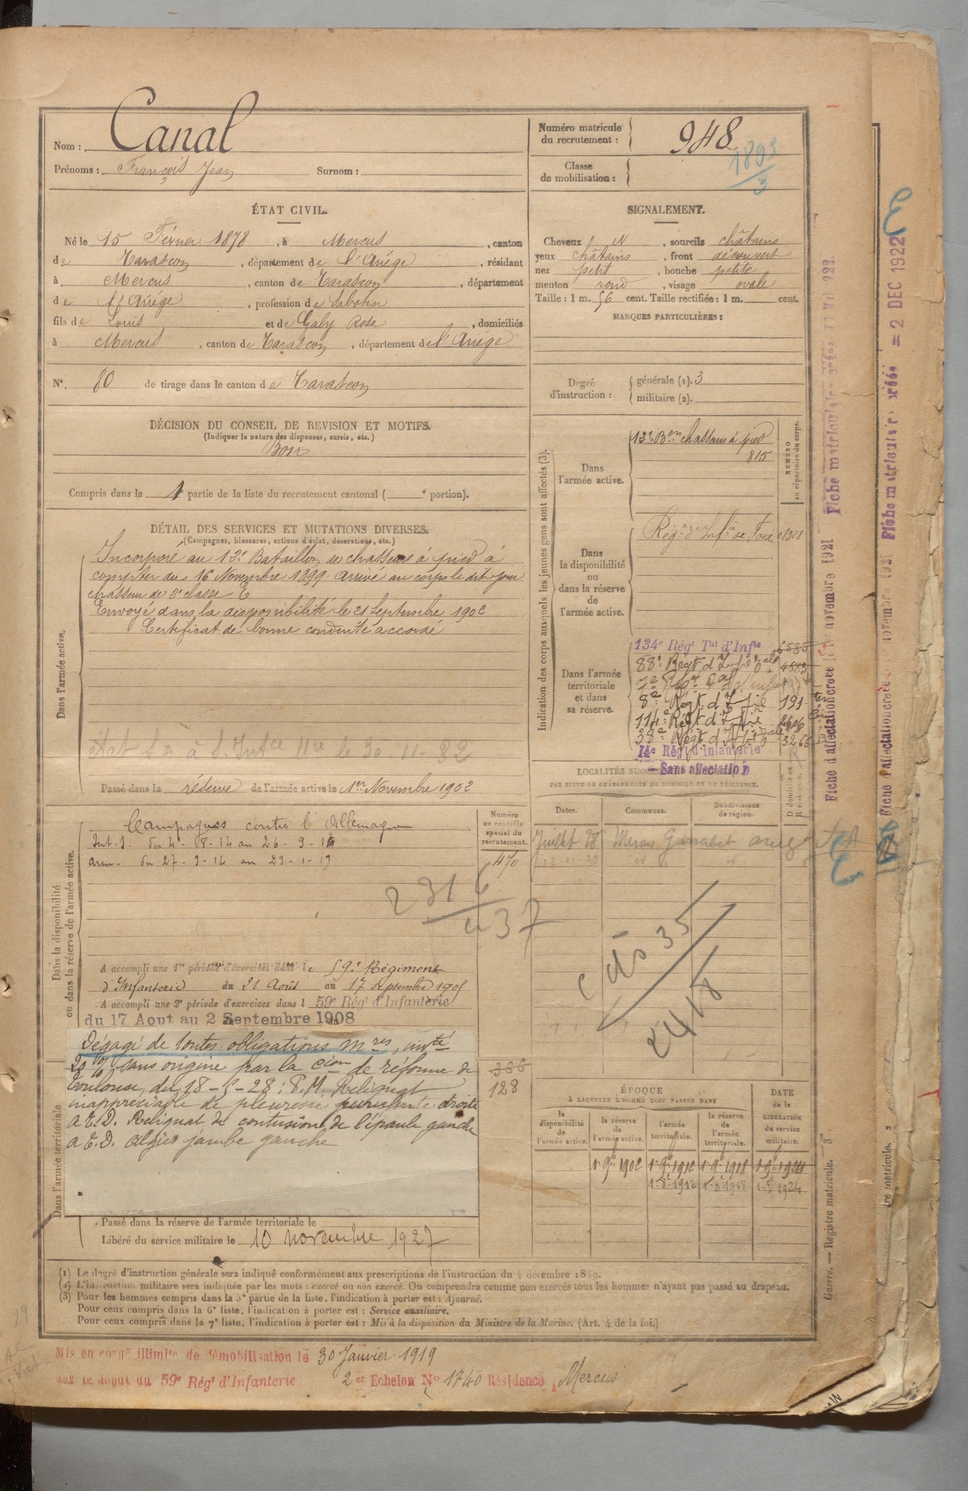 Nom : Canal
Prénoms : François Jean Surnom :
Numéro matricule du recrutement : 948
Classe de mobilisation : 1893/3
ÉTAT CIVIL.
Né le 15 Février 1878, à Mercus, canton
de Tarascon, département de l'Ariége, résidant
à Mercus, canton de Tarascon, département
de l'Ariége, profession de
fils de Louis et de Galy Rose, domiciliés
à Mercus, canton de Tarascon, département de l'Ariége
N°. 80 de tirage dans le canton de Tarascon
SIGNALEMENT.
Cheveux N, sourcils châtains
yeux châtains, front découvert
nez petit, bouche petite
menton rond, visage ovale
Taille : 1 m. 56 cent. Taille rectifiée : 1 m. cent.
MARQUES PARTICULIÈRES :
Degré d'instruction :
générale (1). 3
militaire (2).
DÉCISION DU CONSEIL DE REVISION ET MOTIFS.
(Indiquer la nature des dispenses, sursis, etc.)
Bon
Compris dans la 1 partie de la liste du recrutement cantonal ( e portion).
DÉTAIL DES SERVICES ET MUTATIONS DIVERSES.
(Campagnes, blessures, actions d'éclat, décorations, etc.)
Dans l'armée active.
Incorporé au 13e Bataillon de chasseurs à pied à
compter du 16 Novembre 1899. Arrivé au corps le dit jour
chasseur de 2e classe
Envoyé dans la disponibilité le 21 Septembre 1902
Certificat de bonne conduite accordé
Passé dans la réserve de l'armée active le 1er Novembre 1902
Indication des corps auxquels les jeunes gens sont affectés (3).
NUMÉRO au répertoire du corps.
Dans l'armée active.
13e Bon chasseurs à pied 815
Dans la disponibilité ou dans la réserve de l'armée active.
Régt d'Infie de Foix
Dans l'armée territoriale et dans sa réserve.
134e Régt Tal d'Infie
88e Régt d'Infie
8e Régt d'Infie 191
114e Régt d'Infie
14e Régt d'Infanterie
Sans affectation
Dans la disponibilité ou dans la réserve de l'armée active.
Campagnes contre l'Allemagne
Int. du 4-08-14 au 26-9-14
arm. du 27-9-14 au 29-1-19
Numéro au contrôle spécial du recrutement.
470
231
437
A accompli une 1re période d'exercices dans le 59e Régiment
d'Infanterie du 21 Août au 17 Septembre 1905
A accompli une 2e période d'exercices dans l 59e Rég d'Infanterie
du 17 Aout au 2 Septembre 1908
Dans l'armée territoriale
Dégagé de toutes obligations mres, invté
sans origine par la cion de réforme de
Toulouse du 18-5-28 : P.M. Reliquat
inappréciable de pleurésie purulente droite
à E.D. Reliquat de contusions de l'épaule gauche
à E.D. algies jambe gauche
128
Passé dans la réserve de l'armée territoriale le
Libéré du service militaire le 10 novembre 1927
LOCALITÉS
Dates. Communes. Subdivisions de région.
Juillet 28 Mercus Garrabet
cds 35
2418
ÉPOQUE
À LAQUELLE L'HOMME DOIT PASSER DANS
la disponibilité de l'armée active.
la réserve de l'armée active.
l'armée territoriale.
la réserve de l'armée territoriale.
DATE de la LIBÉRATION du service militaire.
1er 9bre 1902 1er 9bre 1912 1er 9bre 1918 1er 9bre 1924
(1) Le degré d'instruction générale sera indiqué conformément aux prescriptions de l'instruction du 4 décembre 1889.
(2) L'instruction militaire sera indiquée par les mots : exercé ou non exercé. On comprendra comme non exercés tous les hommes n'ayant pas passé au drapeau.
(3) Pour les hommes compris dans la 5e partie de la liste, l'indication à porter est : Ajourné.
Pour ceux compris dans la 6e liste, l'indication à porter est : Service auxiliaire.
Pour ceux compris dans la 7e liste, l'indication à porter est : Mis à la disposition du Ministre de la Marine. (Art. 4 de la loi.)
Mis en congé illimité de démobilisation le 30 Janvier 1919
par le dépôt du 59e Régt d'Infanterie 2e Echelon N° 1740 Résidence Mercus
Guerre. — Registre matricule. 3
Fiche matriculaire créée
Fiche d'affectation créée novembre 1921
Fiche matriculaire créée = 2 DEC 1922